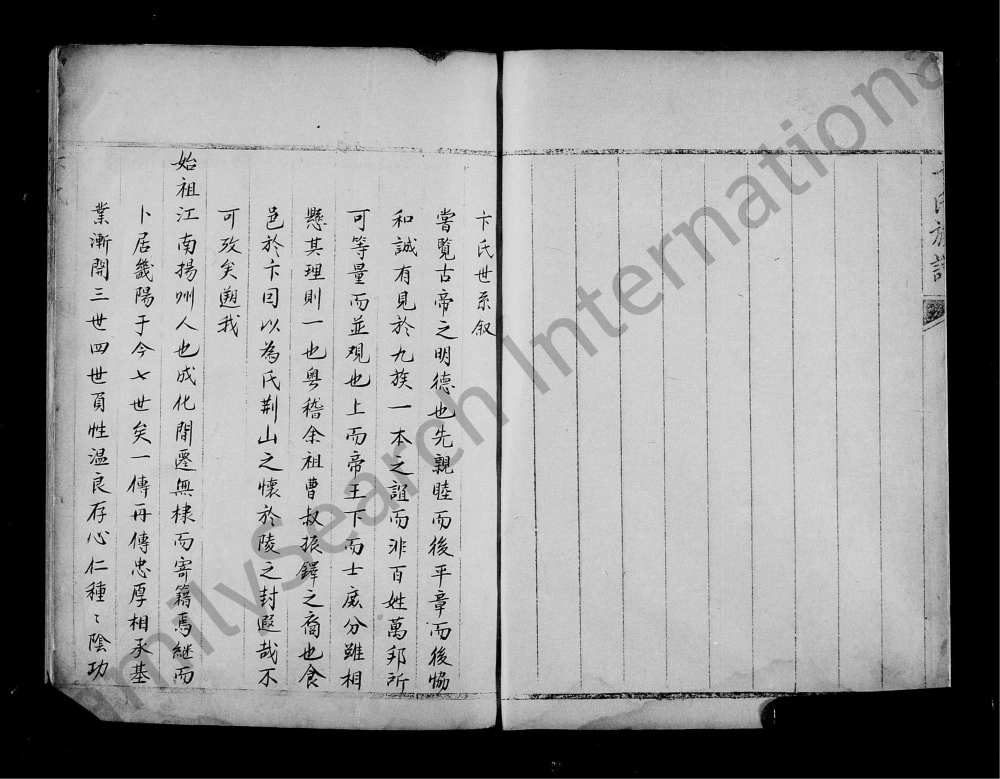 卞氏族譜
卞氏世系叙
嘗覧古帝之明德也先親睦而後平章而後恊
和誠有見於九族一本之誼而非百姓萬邦所
可等量而並观也上而帝王下而士庶分雖相
懸其理則一也粤稽余祖曹叔振鐸之裔也食
邑於卞因以為氏荆山之懷於陵之封遐哉不
可攷矣遡我
始祖江南揚州人也成化間遷無棣而寄籍焉継而
卜居畿陽于今七世矣一傳再傳忠厚相承基
業漸開三世四世貟性温良存心仁種〻隂功
FamilySearch International